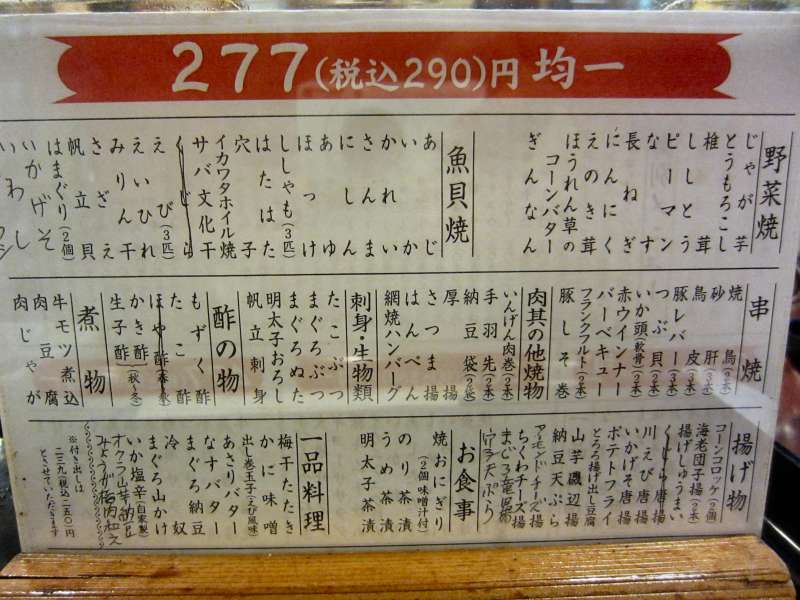 277(税込290)円 均一
野菜焼
じゃが芋
とうもろこし
椎茸
ししとう
ピーマン
なす
長ねぎ
にんにく
えのき茸
ほうれん草の
コーンバター
ぎんなん
魚貝焼
あじ
いか
かれい
さんま
にしん
あゆ
ほっけ
ししゃも(3匹)
はたはた
穴子
イカワタホイル焼
サバ文化干
くじら
えび(3匹)
えいひれ
みりん干
さざえ
帆立貝
はまぐり(2個)
いかげそ
いわし
串焼
焼鳥(2本)
砂肝(2本)
鳥皮(2本)
豚レバー(2本)
つぶ貝(2本)
いか頭(軟骨)(2本)
赤ウインナー
バーベキュー
フランクフルト(2本)
豚しそ巻
肉其の他焼物
いんげん肉巻(2本)
手羽先(2本)
納豆袋(2本)
厚揚
さつま揚
はんぺん
網焼ハンバーグ
刺身・生物類
たこぶつ
まぐろぶつ
まぐろぬた
明太子おろし
帆立刺身
酢の物
もずく酢
たこ酢
ほや酢
かき酢(秋・冬)
生子酢
煮物
牛モツ煮込
肉豆腐
肉じゃが
揚げ物
コーンコロッケ(2個)
海老団子揚(2本)
揚げしゅうまい
くじら唐揚
川えび唐揚
いかげそ唐揚
ポテトフライ
とろろ揚げ出し豆腐
山芋磯辺揚
納豆天ぷら
アーモンドチーズ揚
ちくわチーズ揚
お食事
焼おにぎり
(2個味噌汁付)
のり茶漬
うめ茶漬
明太子茶漬
一品料理
梅干たたき
かに味噌
出し巻玉子(えび風味)
あさりバター
なすバター
まぐろ納豆
冷奴
まぐろ山かけ
いか塩辛(自家製)
オクラ山芋納豆
みょうが梅肉和え
※付き出しは
二三九(税込二五〇)円
とさせていただきます